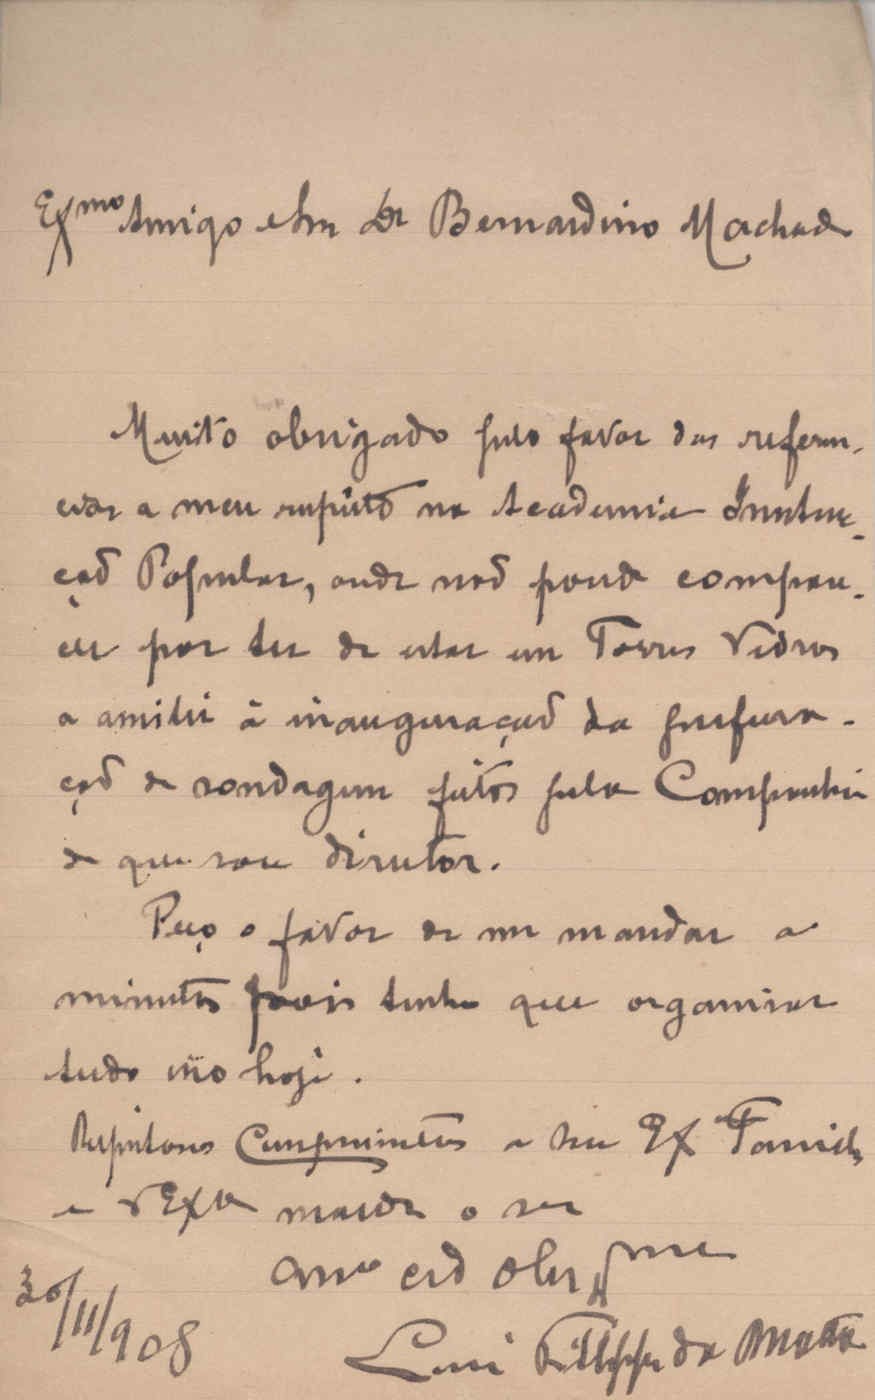 Exmo Amigo e Snr Dr Bernardino Machado
Muito obrigado pelo favor das referen-
cias a meu respeito na Academia Instruc-
ção Popular, onde não poude compare-
cer por ter de estar em Torres Vedras
a assistir á inauguração da perfura-
ção de sondagem feitos pela Companhia
de que sou director.
Peço o favor de me mandar a
minutas pois tenho que organisar
tudo isso hoje.
Respeitosos Cumprimentos a Sua Exa Familia
e VExa mande o seu
Amo cdo Obrgmo
30/11/908
Luiz Fillippe da Matta